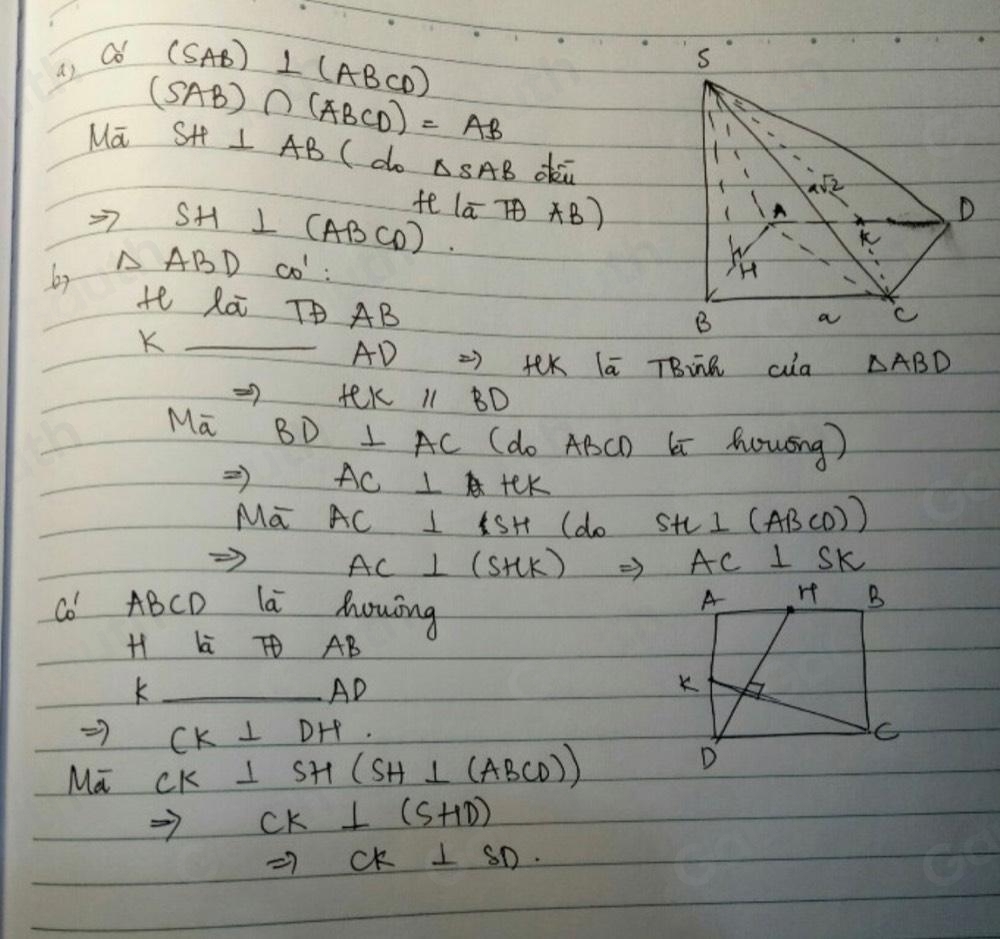 a, Có (SAB) ⊥ (ABCD)
(SAB) ∩ (ABCD) = AB
Mà SH ⊥ AB (do △SAB đều
H là TĐ AB)
=> SH ⊥ (ABCD).
b, △ ABD có:
H là TĐ AB
K ——— AD => HK là TBình của △ABD
=> HK // BD
Mà BD ⊥ AC (do ABCD là hvuông)
=> AC ⊥ HK
Mà AC ⊥ SH (do SH ⊥ (ABCD))
=> AC ⊥ (SHK) => AC ⊥ SK
Có ABCD là hvuông
H là TĐ AB
K ——— AD
=> CK ⊥ DH.
Mà CK ⊥ SH (SH ⊥ (ABCD))
=> CK ⊥ (SHD)
=> CK ⊥ SD.
S
a√2
A
K
D
H
B
a
C
A
H
B
K
D
C